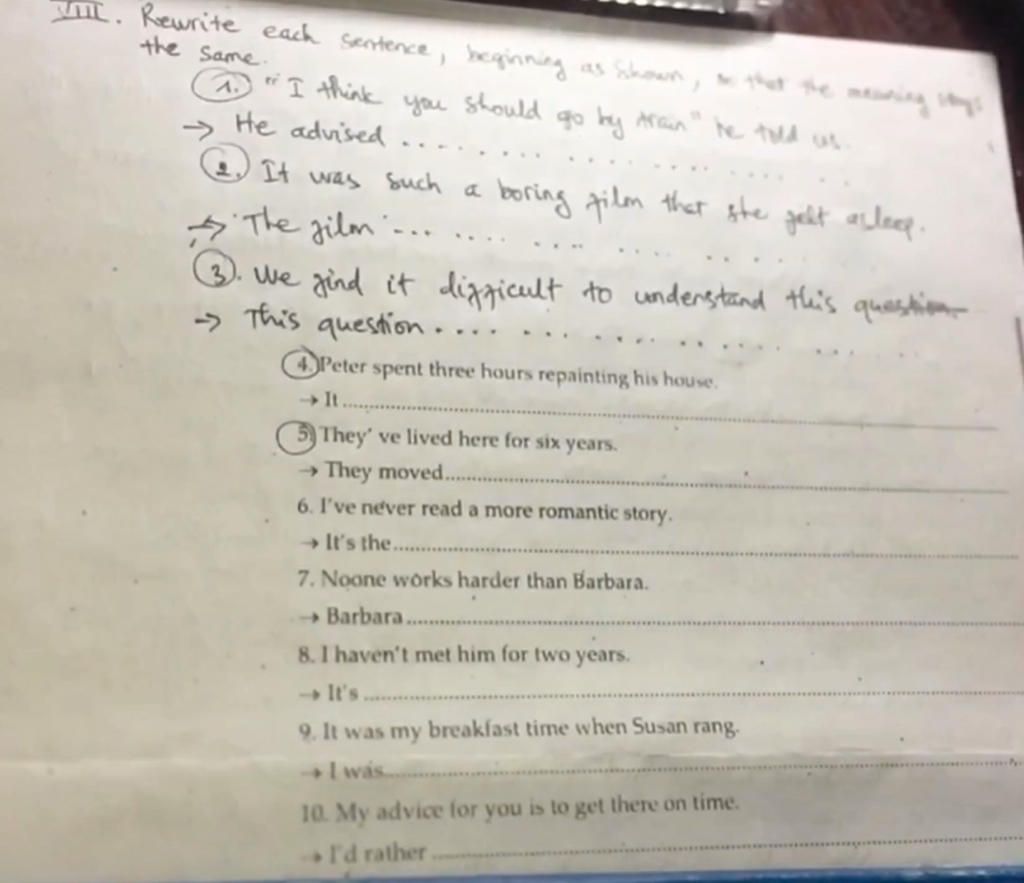 VIII. Rewrite each sentence, beginning as shown, so that the meaning stays
the same.
1. "I think you should go by train" he told us.
→ He advised ...........................
2. It was such a boring film that she felt asleep.
→ The film ...........................
3. We find it difficult to understand this question
→ This question ...........................
4. Peter spent three hours repainting his house.
→ It ...........................
5. They' ve lived here for six years.
→ They moved ...........................
6. I've never read a more romantic story.
→ It's the ...........................
7. Noone works harder than Barbara.
→ Barbara ...........................
8. I haven't met him for two years.
→ It's ...........................
9. It was my breakfast time when Susan rang.
→ I was ...........................
10. My advice for you is to get there on time.
→ I'd rather ...........................